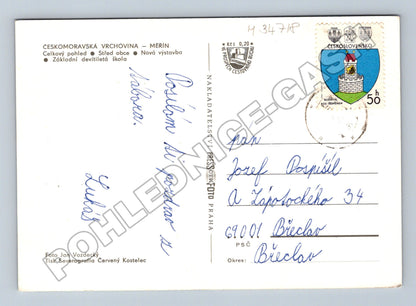 ČESKOMORAVSKÁ VRCHOVINA – MĚŘÍN
Celkový pohled • Střed obce • Nová výstavba
• Základní devítiletá škola
Kčs 0,20
H 347/P
ČESKOSLOVENSKO
50 h
NAKLADATELSTVÍ PRESSFOTO PRAHA
Posílám ti pozdrav z
tábora.
Lukáš
pan
Josef Pospíšil
A Zápotockého 34
69001 Břeclav
PSČ
Břeclav
Okres:
Foto Jan Vozdecký
Tisk Severografia Červený Kostelec
POHLEDNICE-GASK